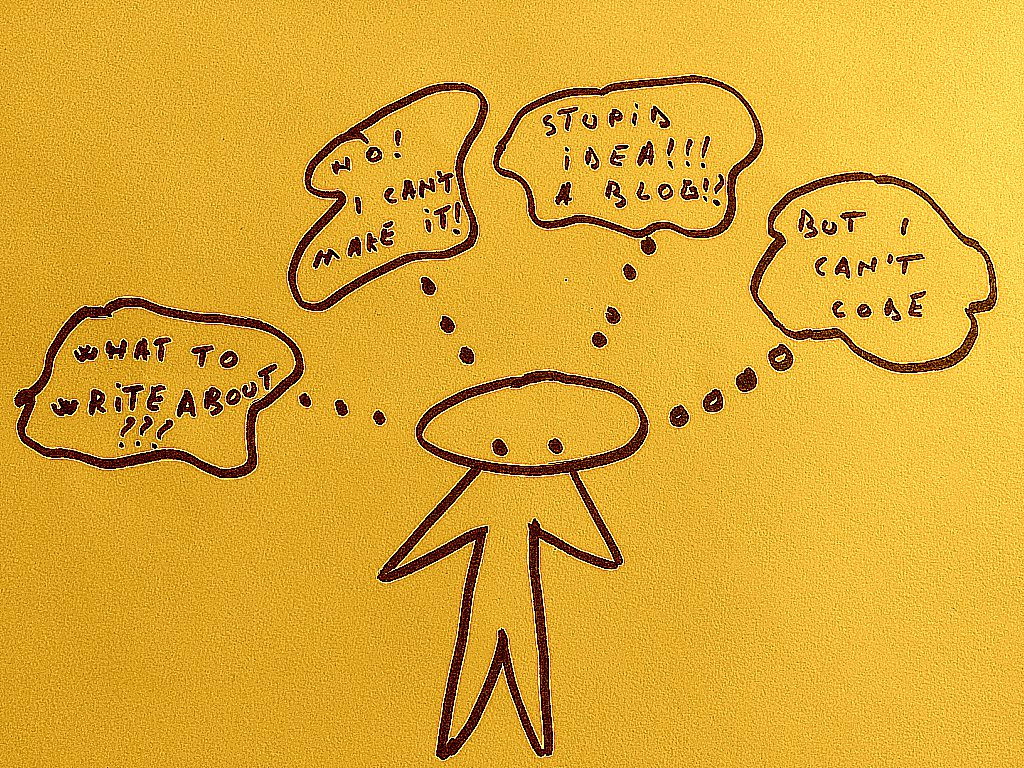 WHAT TO
WRiTE ABOUT
???
NO!
I CAN'T
MAKE iT!
STUPiD
iDEA!!!
A BLOG!?
BUT I
CAN'T
CODE